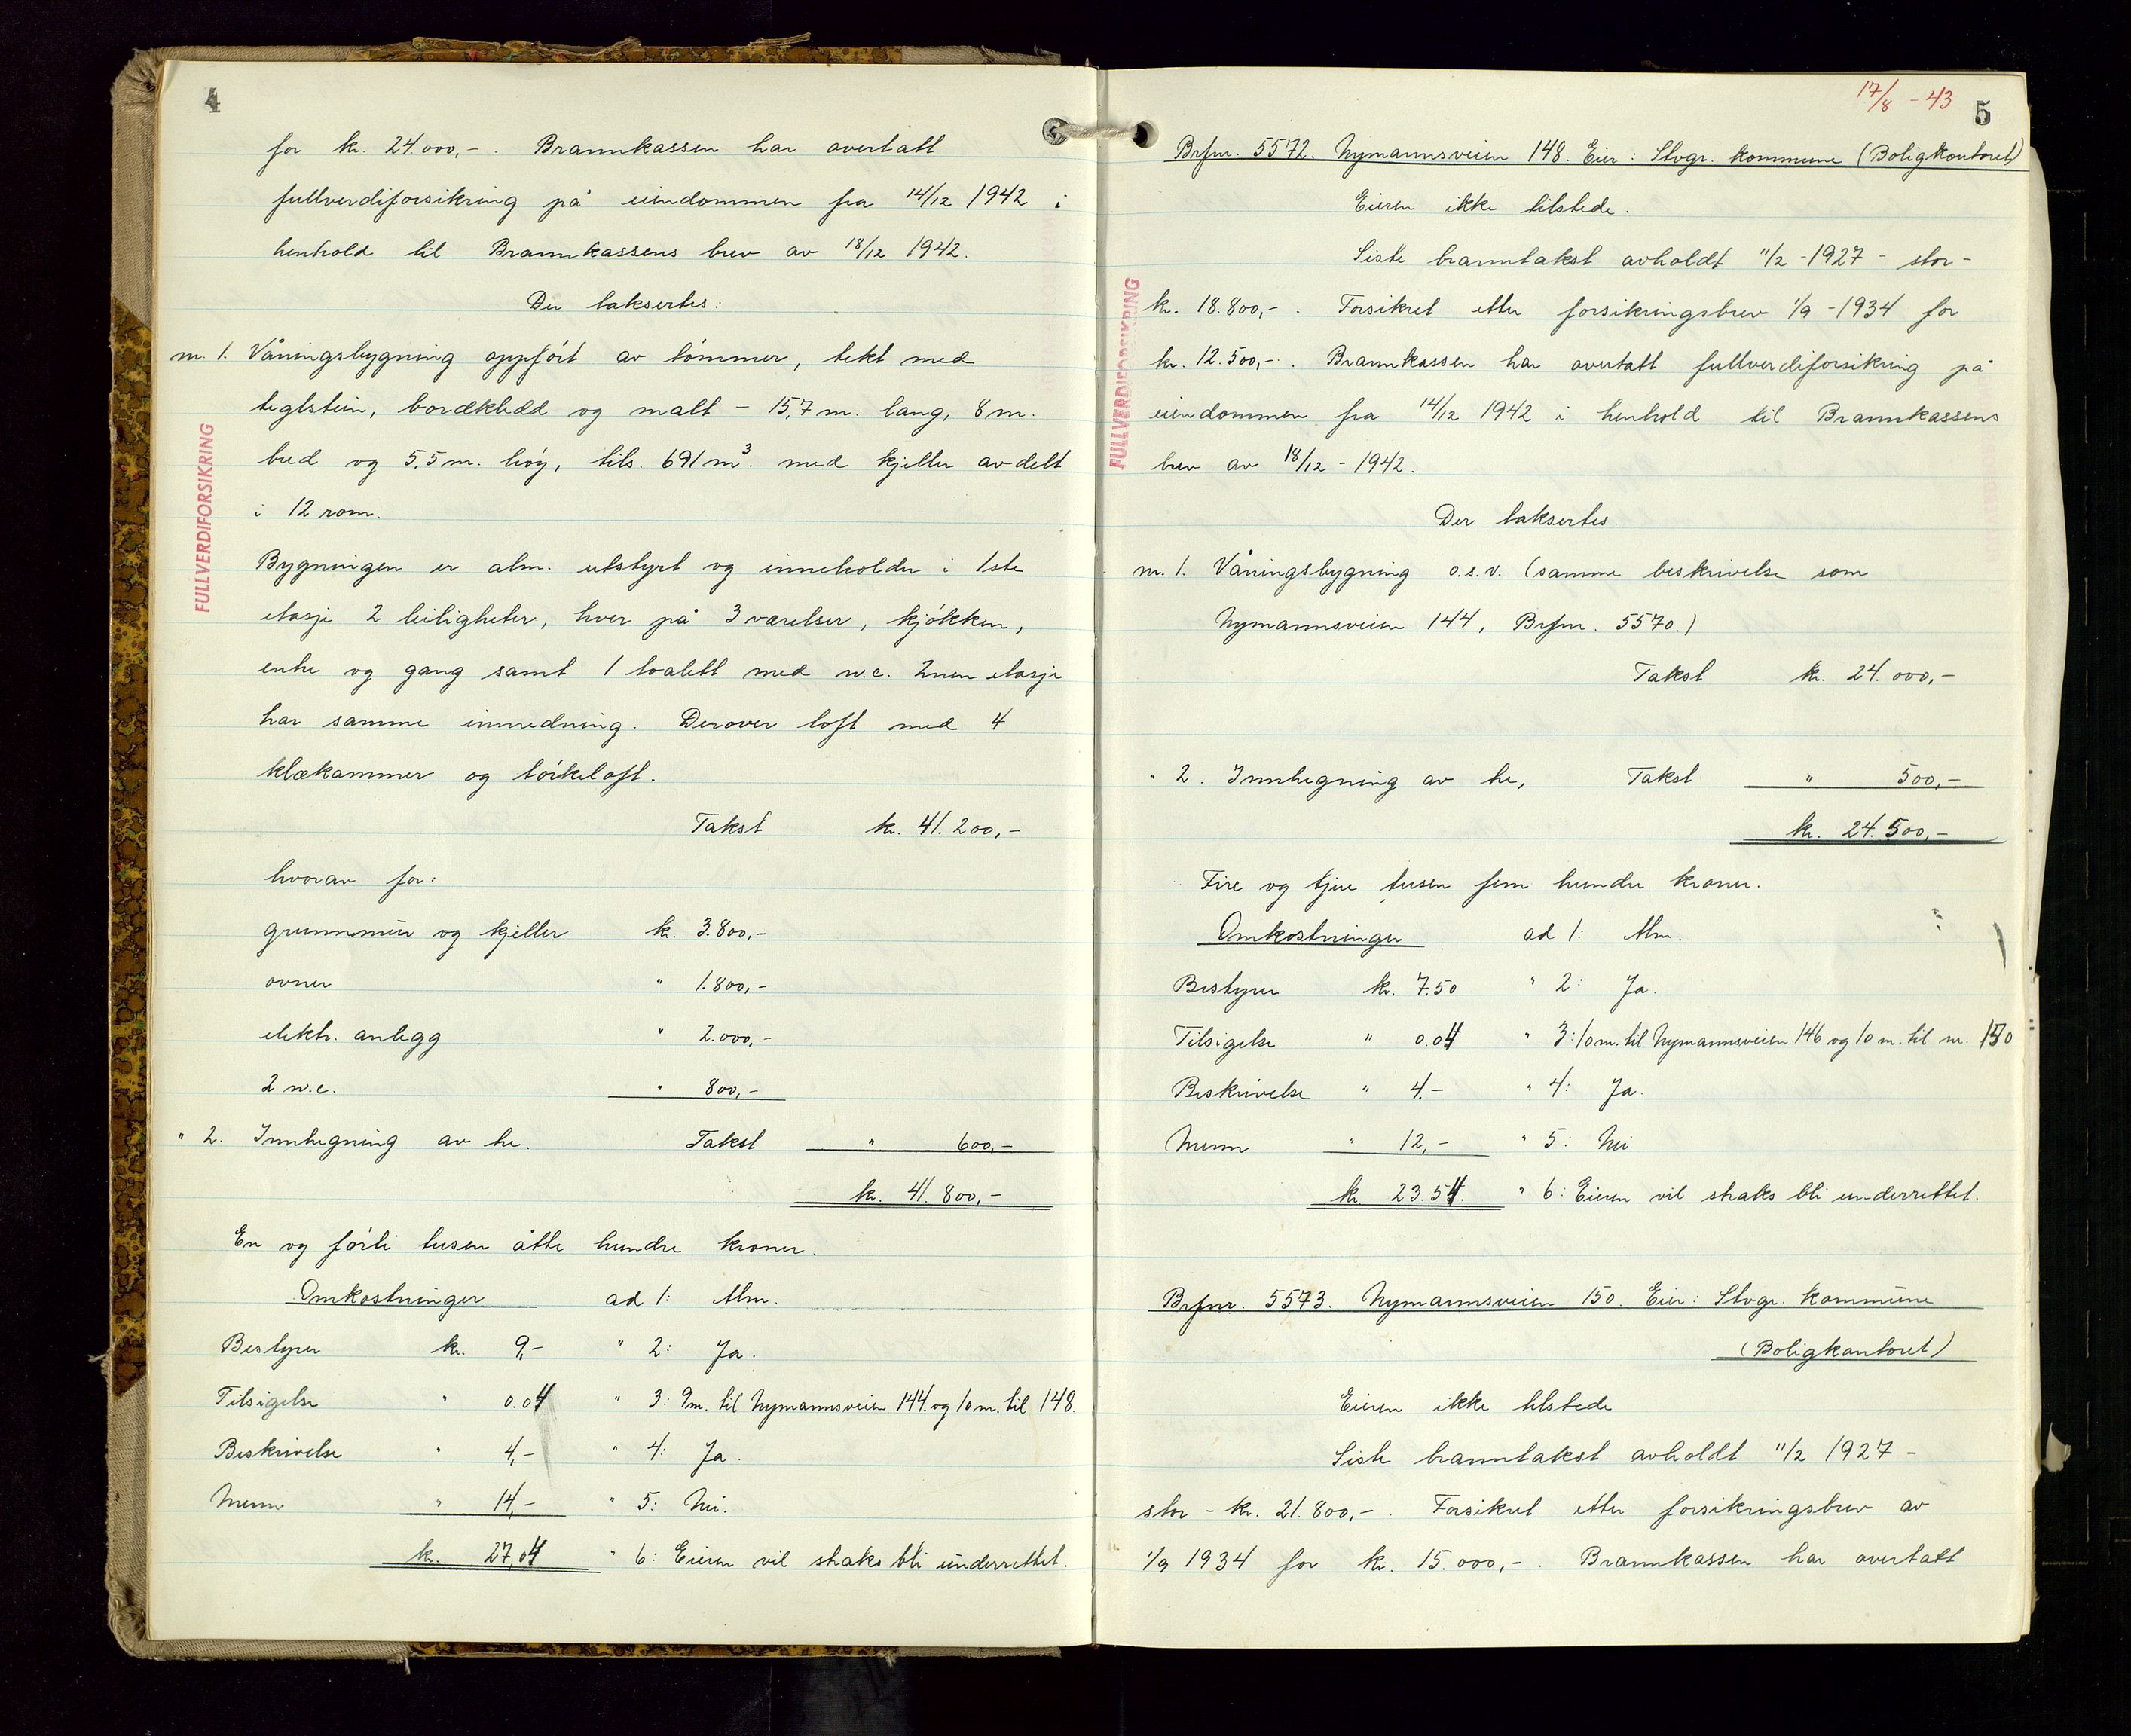 4
for kr. 24.000,-. Brannkassen har overtatt
fullverdiforsikring på eiendommen fra 14/12 1942 i
henhold til Brannkassens brev av 18/12 1942.
Der taksertes:
nr. 1. Våningsbygning oppført av tømmer, tekt med
teglstein, bordkledd og malt - 15,7 m. lang, 8 m.
bred og 5,5 m. høy, tils. 691 m³. med kjeller avdelt
i 12 rom.
Bygningen er alm. utstyrt og inneholder i 1ste
etasje 2 leiligheter, hver på 3 værelser, kjøkken,
entre og gang samt 1 toalett med w.c. 2nen etasje
har samme innredning. Derover loft med 4
klækammer og tørkeloft.
Takst kr. 41.200,-
hvorav for:
grunnmur og kjeller kr. 3.800,-
ovner " 1.800,-
elektr. anlegg " 2.000,-
2 w.c. " 800,-
" 2. Innhegning av tre. Takst " 600,-
kr. 41.800,-
En og førti tusen åtte hundre kroner.
Omkostninger ad 1: Alm.
Bestyrer kr. 9,- " 2: Ja.
Tilsigelse " 0.04 " 3: 9m. til Nymannsveien 144. og 10 m. til 148.
Beskrivelse " 4,- " 4: Ja.
Menn " 14,- " 5: Nei.
kr. 27,04 " 6: Eieren vil straks bli underrettet.
FULLVERDIFORSIKRING
17/8 - 43
5
Brfnr. 5572. Nymannsveien 148. Eier: Stvgr. kommune (Boligkontoret)
Eieren ikke tilstede.
Siste branntakst avholdt 11/2 - 1927 - stor -
kr. 18.800,-. Forsikret etter forsikringsbrev 1/9 - 1934 for
kr. 12.500,-. Brannkassen har overtatt fullverdiforsikring på
eiendommen fra 14/12 1942 i henhold til Brannkassens
brev av 18/12 - 1942.
Der taksertes.
nr. 1. Våningsbygning o.s.v. (samme beskrivelse som
Nymannsveien 144, Brfnr. 5570.)
Takst kr. 24.000,-
" 2. Innhegning av tre, Takst " 500,-
kr. 24.500,-
Fire og tjue tusen fem hundre kroner.
Omkostninger ad 1: Alm.
Bestyrer kr. 7.50 " 2: Ja.
Tilsigelse " 0.04 " 3: 10m. til Nymannsveien 146 og 10 m. til nr. 150
Beskrivelse " 4.- " 4: Ja.
Menn " 12,- " 5: Nei
kr. 23.54. " 6: Eieren vil straks bli underrettet.
Brfnr. 5573. Nymannsveien 150. Eier: Stvgr. kommune
(Boligkontoret)
Eieren ikke tilstede
Siste branntakst avholdt 11/2 1927 -
stor - kr. 21.800,-. Forsikret etter forsikringsbrev av
1/9 1934 for kr. 15.000,-. Brannkassen har overtatt
FULLVERDIFORSIKRING